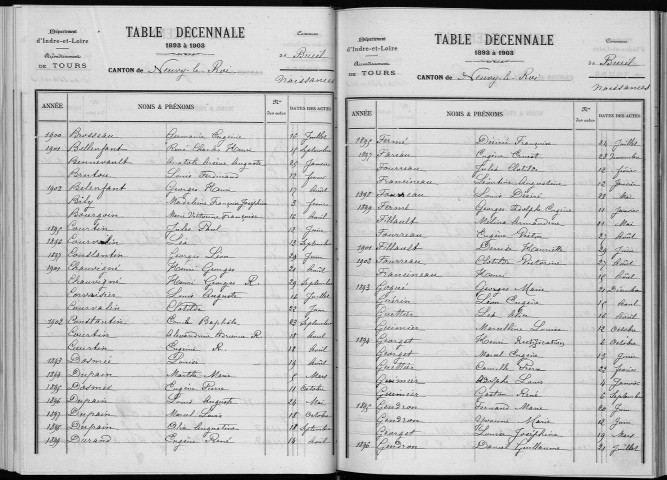 Département
d'Indre-et-Loire
Arrondissement
DE TOURS
TABLE DÉCENNALE
1893 à 1903
CANTON de Neuvy-le-Roi
Commune
de Bueil
Naissances
ANNÉE NOMS & PRÉNOMS Nos des actes DATES DES ACTES
1900 Brosseau Germaine Eugénie 12 Juillet
1901 Bellenfant René Charles Henri 15 Septembre
Bennevault Anatole Arsène Auguste 25 Janvier
Breton Louis Ferdinand 17 février
1902 Bélenfant Georges Henri 17 Août
Bély Madeleine Françoise Joséphine 2 février
Bourgoin Marie Victorine Françoise 16 Avril
1895 Courtin Jules Paul
Courvalin Léa 12 Septembre
1897 Constantin Georges Léon 29 Juin
1901 Chauvigné Henri Georges 21 Août
Chauvigné Henri Georges R. 29 Septembre
Corvaisier Louis Auguste 14 Juillet
Courvalin Clotilde 22 Juin
1902 Constantin Emile Baptiste 23 Septembre
Courtin Alexandrine R. 18 Avril
Courtin Eugénie R. 18 Avril
1893 Desmée Louise 14 Avril
1894 Dupain Marthe Marie 5 Mars
1895 Desmée Eugène Pierre 11 Octobre
1896 Dupain Louis Auguste 24 Mai
1897 Dupain Marcel Louis 18 Octobre
1898 Dupain Augustine 18 Septembre
1899 Durand Eugène René 14 Avril
Département
d'Indre-et-Loire
Arrondissement
DE TOURS
TABLE DÉCENNALE
1893 à 1903
CANTON de Neuvy-le-Roi
Commune
de Bueil
Naissances
ANNÉE NOMS & PRÉNOMS Nos des actes DATES DES ACTES
1895 Fermé Désiré François 24 Juillet
1897 Fareau Eugène Ernest 23 Novembre
Fourreau Jules Clotilde 12 février
Francineau Léontine Augustine 12 Janvier
1898 Fourreau Louis Désiré 22 Mai
1899 Fermé Georges Adolphe Eugène 11 Janvier
Fillault Mélina Armandine 01 Mai
Fourreau Eugène 23 Août
1901 Fillault Denise Henriette 29 Juin
1902 Fourreau Clotilde Victorine 27 Août
Francineau Henri 10 Août
1893 Gogué Georges Marie 21 Décembre
Guérin Léon Eugène 15 Avril
Guettier Léa 16 Avril
Guimier Marcelline Louise 12 Octobre
1894 Georget Henri Rectification 6 Octobre
Georget Marcel Eugène 13 Juin
Guettier Camille Pierre 22 février
Guimier Adolphe Louis 4 Janvier
Guimier Gaston René 6 Septembre
1895 Gendron Fernand Marie 20 Juin
Gendron Yvonne Marie 12 Juin
Georget Louise Joséphine 19 Mars
1896 Gendron Daniel Guillaume 21 Juillet